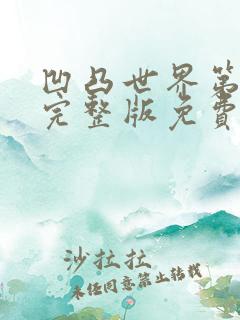 凹凸世界第
完整版免费
沙拉拉
未经同意禁止转载